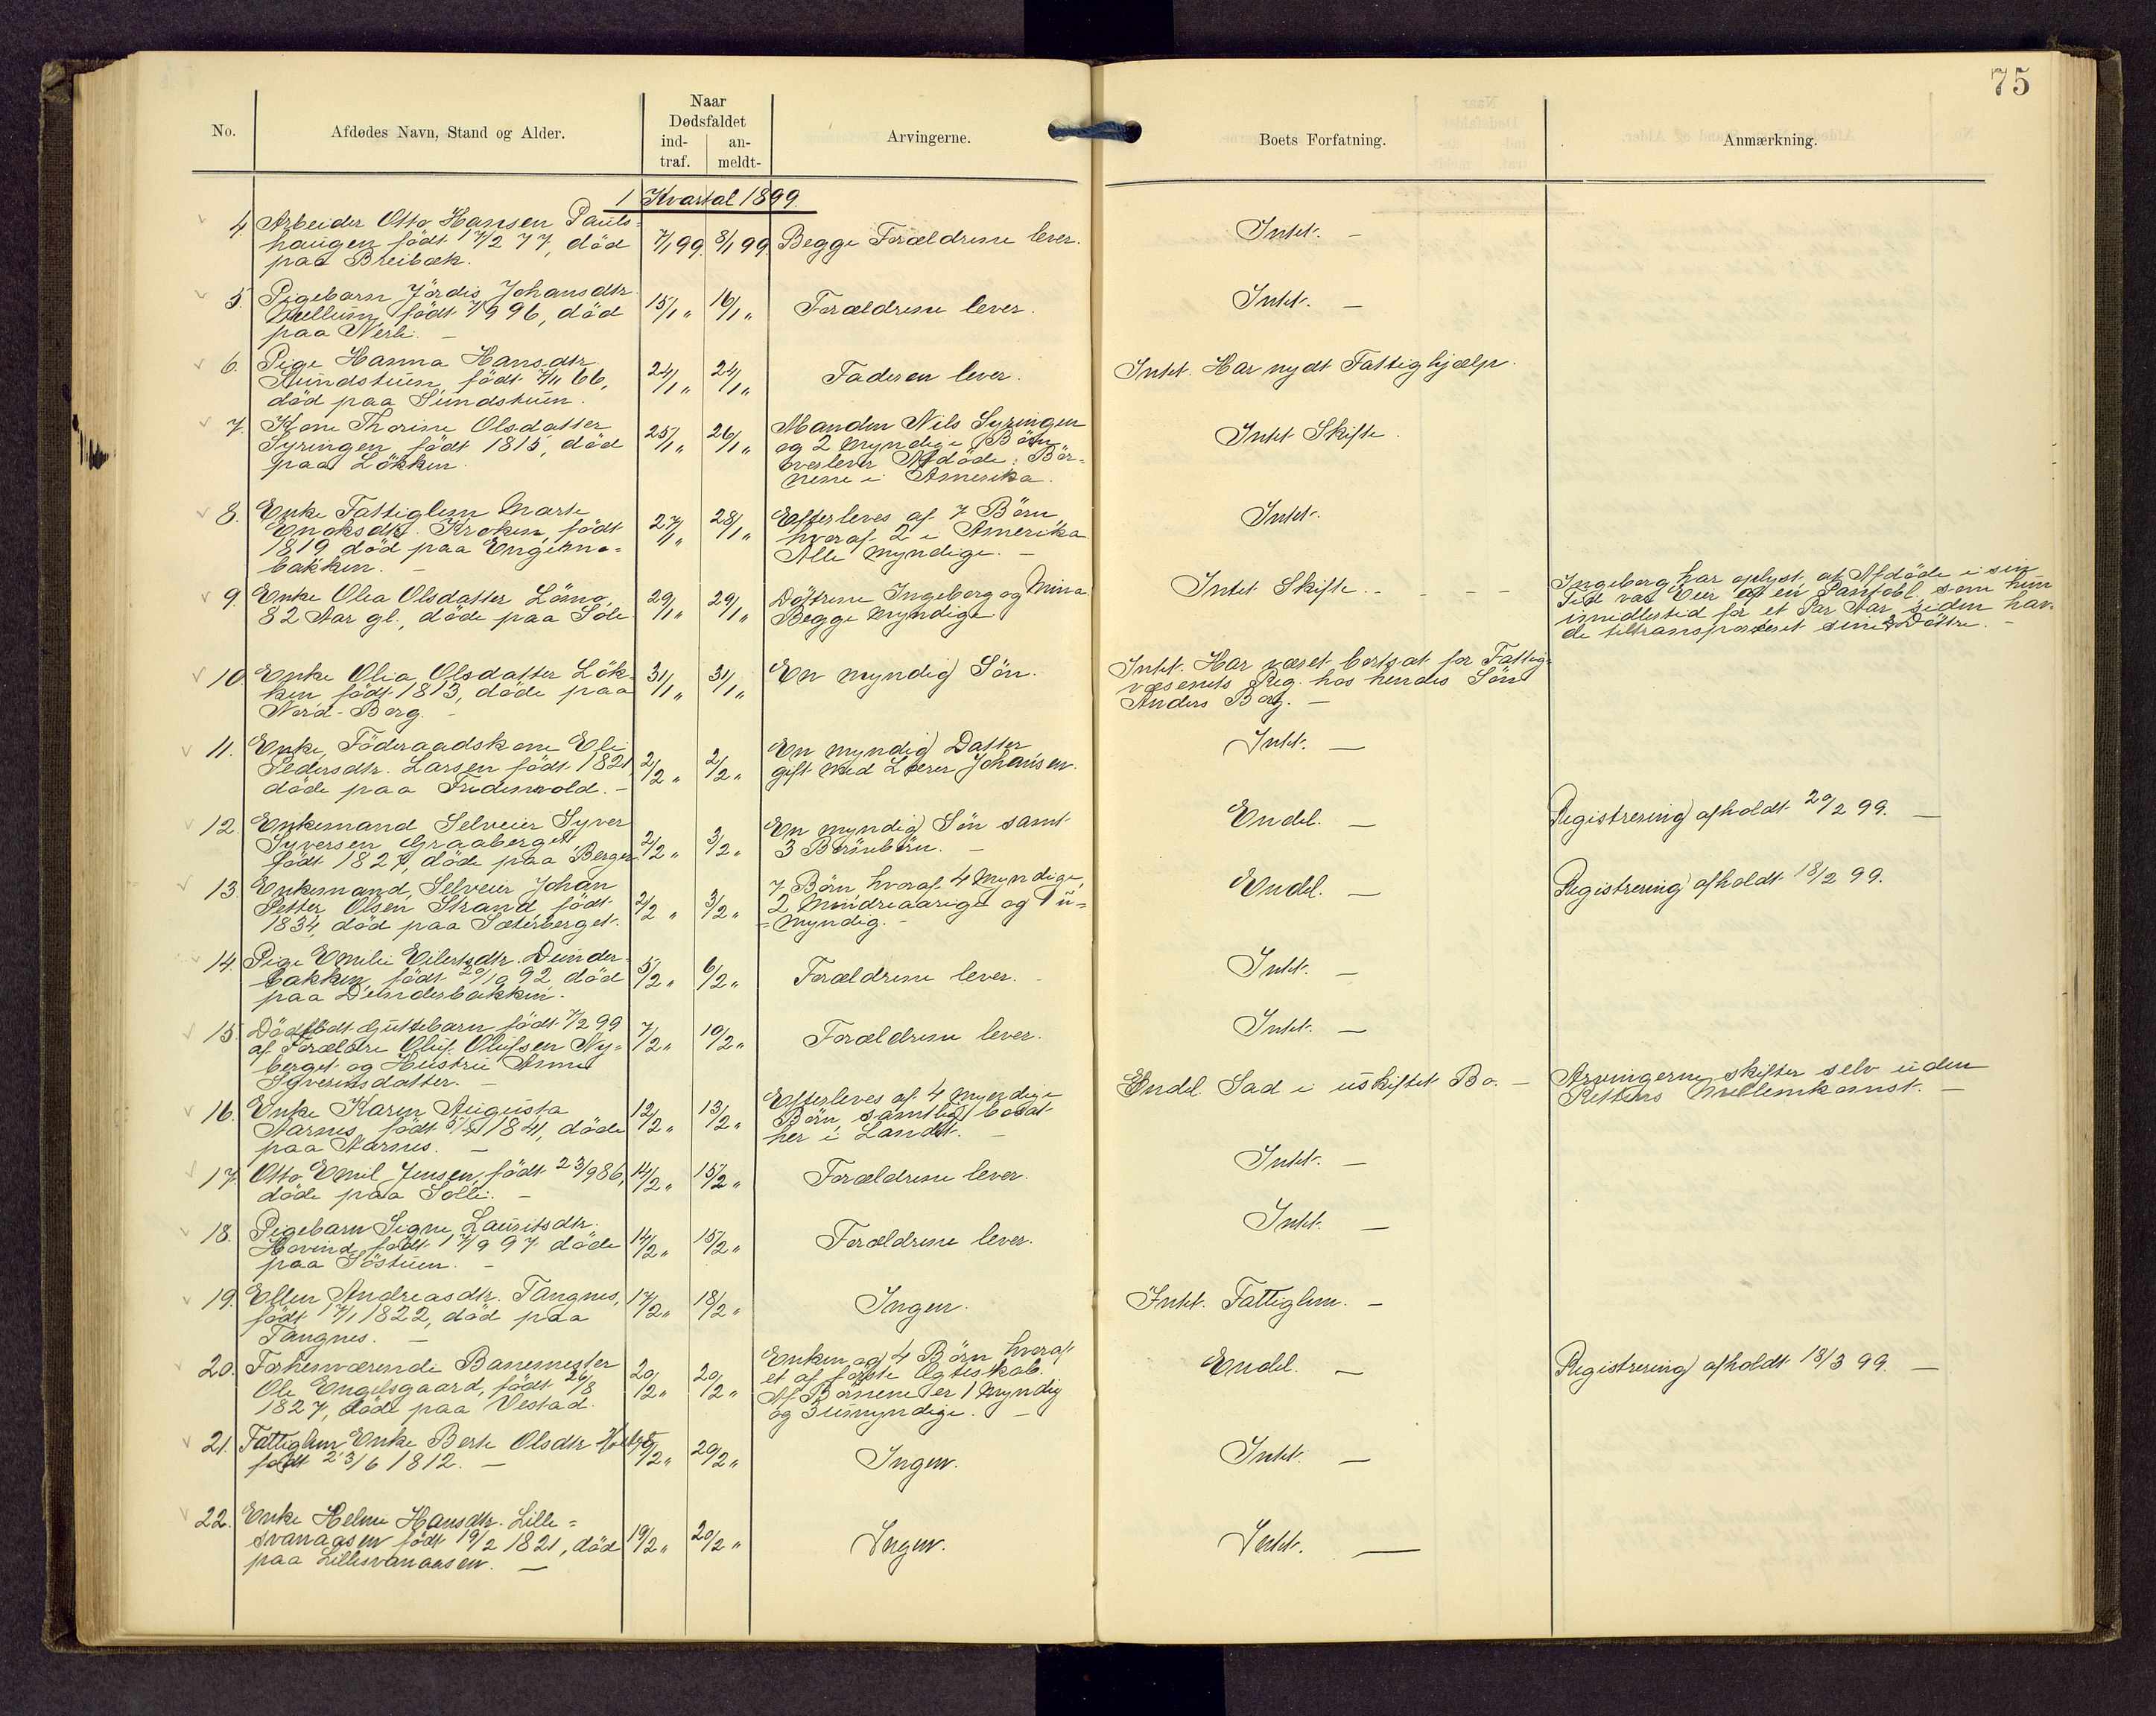 75
No.
Afdødes Navn, Stand og Alder.
Naar
Dødsfaldet
ind-
traf.
an-
meldt-
Arvingerne.
Boets Forfatning.
Anmærkning.
1 Kvartal 1899.
4. Arbeider Otto Hansen Pauls-
haugen født 17/2 77, död
paa Breibæk.
7/1 99. 8/1 99
Begge Forældrene lever.
Intet. -
5. Pigebarn Jördis Johansdtr.
født 7/9 96, död
paa Nerli. -
15/1 " 16/1 "
Forældrene lever.
Intet. -
6. Pige Hanna Hansdtr.
Sundstuen, født 7/11 66,
död paa Sundstuen.
24/1 " 24/1 "
Faderen lever.
Intet. Har nydt Fattighjælp.
7. Kone Thorine Olsdatter
Syringen, født 1815, död
paa Lökken.
25/1 " 26/1 "
Manden Nils Syringen
og 2 myndige Börn
overlever Afdöde; Bör-
nene i Amerika.
Intet Skifte.
8. Enke Fattiglem Marte
Enoksdtr. Kroken, født
1819, död paa Engerno-
bakken. -
27/1 " 28/1 "
Efterleves af 7 Börn
hvoraf 2 i Amerika
Alle myndige. -
Intet.
9. Enke Olea Olsdatter Lömo,
82 Aar gl., döde paa Sole
29/1 " 29/1 "
Döttrene Ingeborg og Mina
Begge myndige
Intet Skifte. - - - -
Ingeborg har oplyst, at Afdöde i sin
Tid var Eier af en Pantobl. som hun
imidlertid for et Par Aar siden hav-
de tiltransporteret sine 2 Döttre. -
10. Enke Olia Olsdatter Lök-
ken, født 1813, döde paa
Nord-Berg. -
31/1 " 31/1 "
En myndig Sön.
Intet. Har været bortsat for Fattig-
væsenets Reg. hos hendes Sön
Anders Berg. -
11. Enke, Föderaadskone Eli
Pedersdtr. Larsen født 1821
döde paa Fredenvold. -
2/2 " 2/2 "
En myndig Datter
gift med Lærer Johansen.
Intet. -
12. Enkemand Selveier Syver
Syversen Graaberget
født 1827, döde paa Berger.
2/2 " 3/2 "
En myndig Sön samt
3 Börnebörn. -
Endel. -
Registrering afholdt 20/2 99. -
13. Enkemand, Selveier Johan
Petter Olsen Strand født
1834, död paa Sæterberget.
2/2 " 3/2 "
7 Börn hvoraf 4 Myndige,
2 Mindreaarige og 1 u-
=myndig. -
Endel. -
Registrering afholdt 18/2 99.
14. Pige Emilie Eilertsdtr. Dunder-
bakken, født 20/10 92, död
paa Dunderbakken.
5/2 " 6/2 "
Forældrene lever. -
Intet. -
15. Dödfödt Guttebarn født 7/2 99
af Forældre Oluf Olufsen Ny-
berget og Hustru Anne
Syverinsdatter. -
7/2 " 10/2 "
Forældrene lever.
Intet. -
16. Enke Karen Augusta
Aarnes, født 1841, döde
paa Aarnes. -
12/2 " 13/2 "
Efterleves af 4 myndige
Börn, samtlige bosat
her i Landet. -
Endel. Sad i uskiftet Bo. -
Arvingerne skifter selv uden
Rettens Mellemkomst. -
17. Otto Emil Jensen, født 23/9 86,
döde paa Solli. -
14/2 " 15/2 "
Forældrene lever.
Intet. -
18. Pigebarn Signe Lauritsdtr.
Hovind, født 17/9 97 döde
paa Söstuen. -
14/2 " 15/2 "
Forældrene lever.
Intet. -
19. Ellen Andreasdtr. Tangnes,
født 17/1 1822, död paa
Tangnes. -
17/2 " 18/2 "
Ingen.
Intet. Fattiglem. -
20. Forhenværende Banemester
Ole Engelsgaard, født 26/8
1827, döde paa Vestad.
20/2 " 20/2 "
Enken og 4 Börn hvoraf
et af første Ægteskab.
Af Börnene er 1 myndig
og 3 umyndige. -
Endel. -
Registrering afholdt 18/3 99. -
21. Fattiglem Enke Berte Olsdtr
født 23/6 1812. -
20/2 "
Ingen.
Intet. -
22. Enke Helene Hansdtr. Lille-
svanaasen født 19/2 1821, död
paa Lillesvanaasen. -
19/2 " 20/2 "
Ingen.
Intet. -